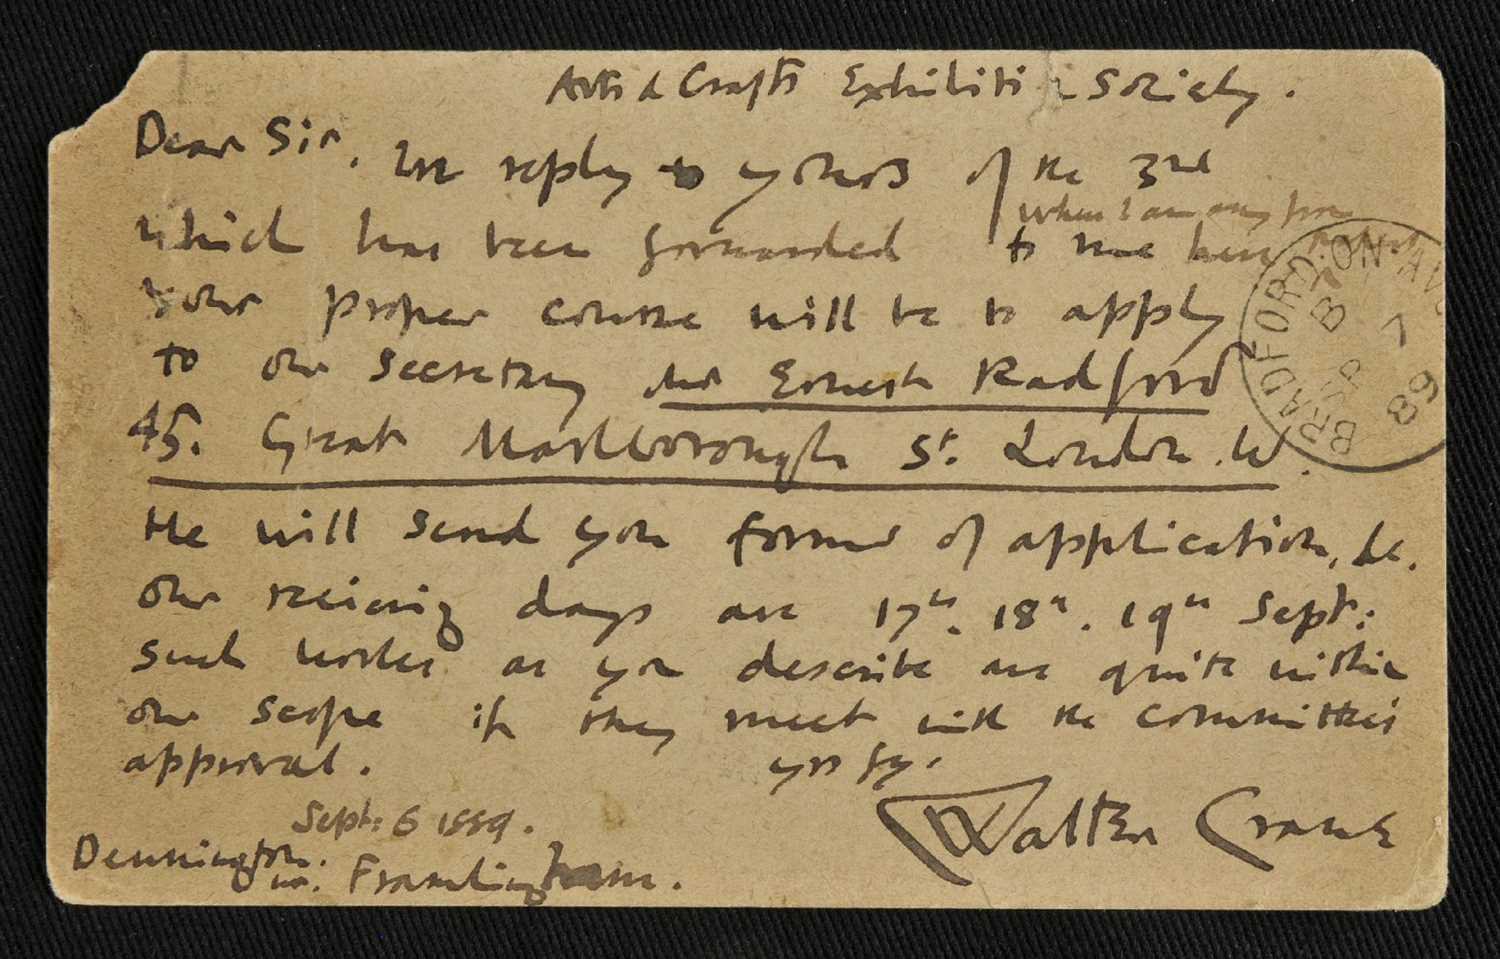 Arts & Crafts Exhibition Society.
Dear Sir. In reply to yours of the 3rd
when I am away from
which has been forwarded to me here
your proper course will be to apply
to our Secretary Mr Ernest Radford
45. Great Marlborough St. London. W.
He will send you forms of application, &c.
our receiving days are 17th. 18th. 19th Sept:
such works as you describe are quite within
our scope if they meet with the committee's
approval. yrs fy.
Walter Crane
Sept: 6 1889.
Dennington.
nr. Framlingham.
BRADFORD-ON-AVO
B
SP 7
89